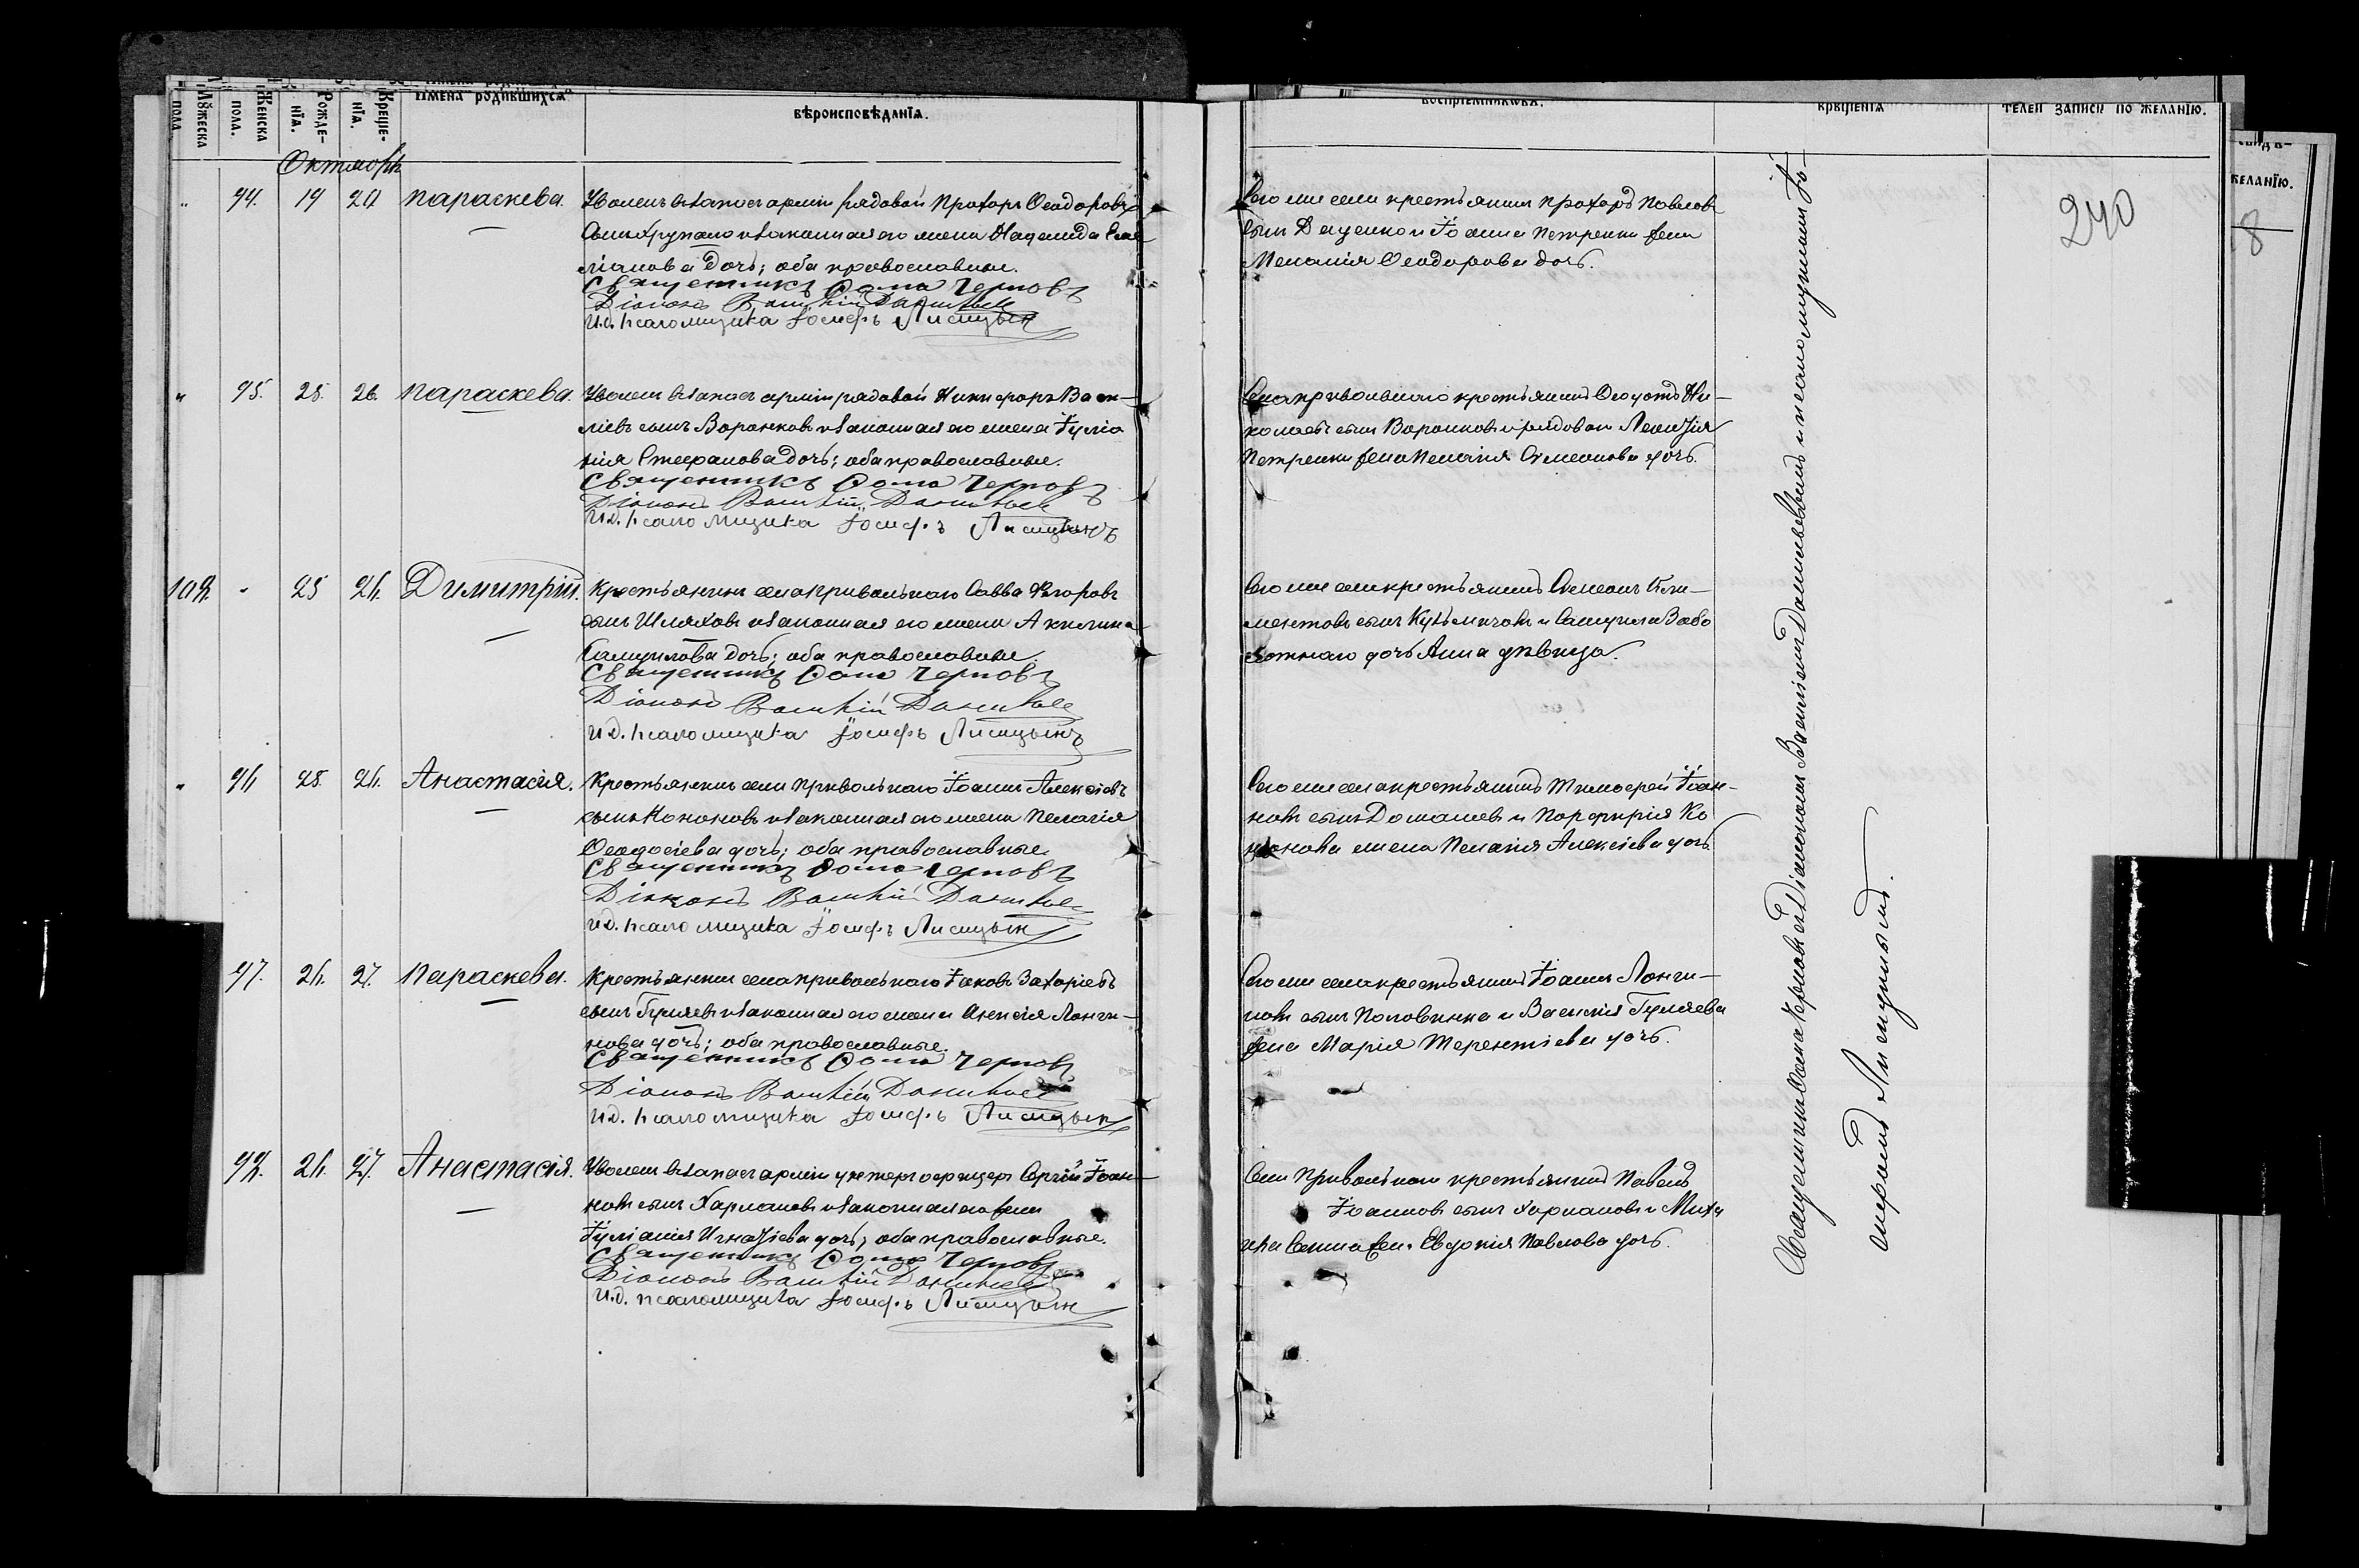 Мꙋжеска пола.
Женска пола.
Рожде-нїѧ.
Креще-нїѧ.
Имена родившихсѧ
вѣроисповѣданїѧ.
Октябрь
" 94. 19 20 Параскева.
Уволен въ запасъ арміи рядовой Прохоръ Ѳеодоровъ
сынъ и законная его жена
ліанова дочь; оба православные.
Священникъ Ѳома Черновъ
Діаконъ Василій Данилевс
И.д. псаломщика Іосифъ Лисицын
" 95. 25. 26. Параскева.
Уволен въ запасъ арміи рядовой Никифоръ Васи-
ліевъ сынъ Воронковъ и законная его жена Іуліа
нія Стефанова дочь; оба православные.
Священникъ Ѳома Черновъ
Діаконъ Василій Данилевс
И.д. псаломщика Іосифъ Лисицынъ
109. " 25 26. Димитрій.
Крестьянинъ села Привольнаго Савва Егоровъ
сынъ Шляховъ и законная его жена Акилина
Самуилова дочь; оба православные.
Священникъ Ѳома Черновъ
Діаконъ Василій Данилевс
И.д. псаломщика Іосифъ Лисицынъ
" 96 25. 26. Анастасія.
Крестьянинъ села Привольнаго Іоаннъ Алексіевъ
сынъ Кононовъ и законная его жена Пелагія
Ѳеодосіева дочь; оба православные.
Священникъ Ѳома Черновъ
Діаконъ Василій Данилевс
И.д. псаломщика Іосифъ Лисицын
97. 26. 27. Параскева.
Крестьянинъ села Привольнаго Іаковъ Захаріевъ
сынъ Гуляевъ и законная его жена Ксенія Лонги-
нова дочь; оба православные.
Священникъ Ѳома Черновъ
Діаконъ Василій Данилевс
И.д. псаломщика Іосифъ Лисицын
98. 26. 27. Анастасія.
Уволен въ запасъ арміи унтеръ офицеръ Сергій Іоан-
новъ сынъ Харлановъ и законная его жена
Іуліанія Игнатіева дочь; оба православные.
Священникъ Ѳома Черновъ
Діаконъ Василій Данилевс
И.д. псаломщика Іосифъ Лисицын
воспрїемниковъ.
крещенїѧ
телей записи по желанїю.
желанїю.
240
8
Того же села крестьянинъ Прохоръ Павловъ
сынъ Даценко и Іоанна Петренки жена
Меланія Ѳеодорова дочь.
Села Привольнаго крестьянинъ Ѳеодотъ Ни-
колаевъ сынъ Воронковъ и рядового Леонтія
Петренки жена Пелагія Симеонова дочь.
Того же села крестьянинъ Симеонъ Кли-
ментовъ сынъ Кузьмичовъ и Самуила Забо
лотнаго дочь Анна дѣвица.
Того же села крестьянинъ Тимофей Іоан-
новъ сынъ Домашевъ и Порфирія Ко
нонова жена Пелагія Алексіева дочь.
Того же села крестьянинъ Іоаннъ Лонги-
новъ сынъ Половинка и Василія Гуляева
жена Марія Терентіева дочь.
Села Привольнаго крестьянинъ Павелъ
Іоанновъ сынъ Харлановъ и
жена Евдокія Павлова дочь.
Священникъ Ѳома Черновъ съ Діакономъ Василіемъ Данилевскимъ и псаломщикомъ Іо-
сифомъ Лисицынымъ.